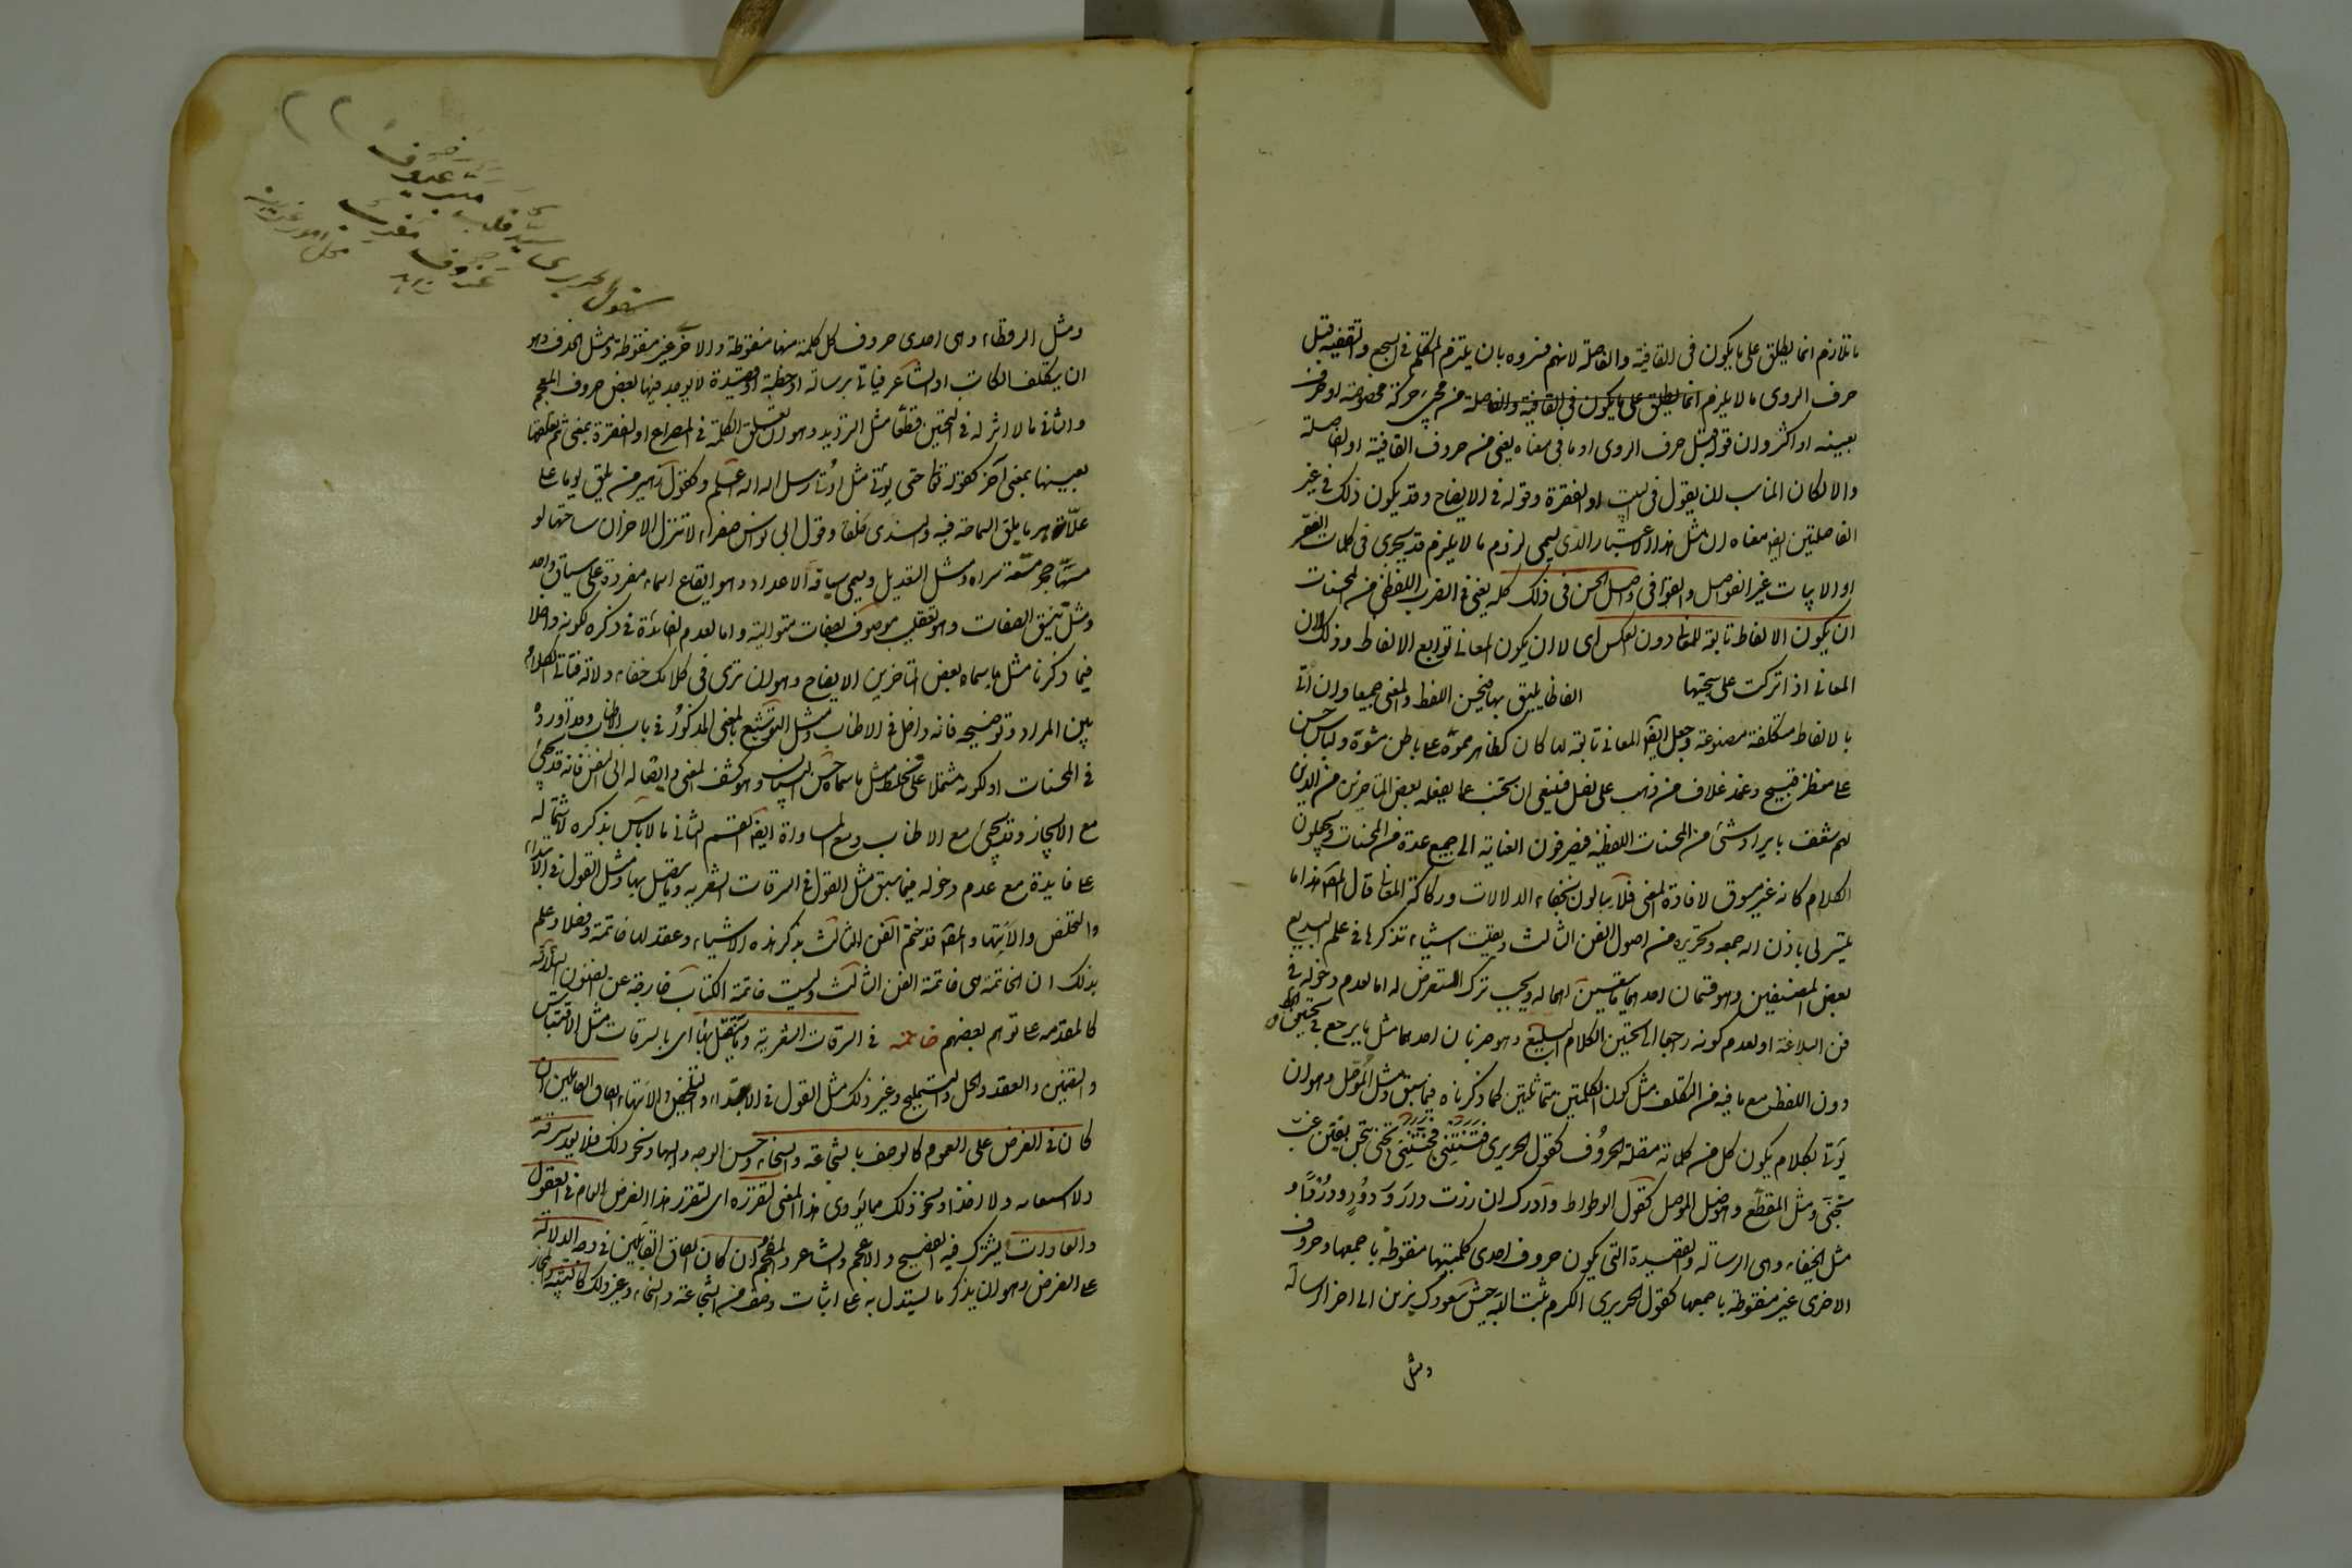 ما يلازم انما يطلق على ما يكون فى القافية والفاصلة لانهم فسروه بان يلتزم المتكلم فى السجع والتقفيه قبل
حرف الروى ما لا يلزم انما يطلق على ما يكون فى القافية والفاصلة من مجئ حركة مخصوصة او حرف
بعينه او اكثر وان قوله قبل حرف الروى او ما فى معناه يعنى من حروف القافية او الفاصلة
والا لكان المناسب ان يقول فى البيت او الفقرة وقوله فى الايضاح وقد يكون ذلك فى غير
الفاصلتين ايضا معناه ان مثل هذا الاعتبار الذى يسمى لزوم ما لا يلزم قد يجرى فى كلمات الفقر
او الابيات غير الفواصل والقوافى واصل الحسن فى ذلك كله يعنى فى الضرب اللفظى من المحسنات
ان يكون الالفاظ تابعة للمعا دون العكس اى لا ان يكون المعانى توابع الالفاظ وذلك لان
المعانى اذا تركت على سجيتها الفاظا يليق بها فيحسن اللفظ والمعنى جميعا وان اتى
بالالفاظ متكلفة مصنوعة وجعل المعانى تابعة لها كان كظاهر مموه على باطن مشوه ولباس حسن
على منظر قبيح وغمد غلاف من ذهب على نصل فينبغى ان يجتنب عما يفعله بعض المتاخرين من الذين
لهم شغف بايراد شئ من المحسنات اللفظيه فيصرفون العناية الى جميع عدة من المحسنات ويجعلون
الكلام كانه غير مسوق لافادة المعنى فلا يبالون بخفاء الدلالات وركاكة المعا قال المص هذا ما
تيسر لى باذن الله جمعه وتحريره من اصول الفن الثالث وبقيت اشياء تذكرها فى علم البديع
بعض المصنفين وهو قسمان احدهما ما يتعين اهماله ويجب ترك التعرض له اما لعدم دخوله فى
فن البلاغة او لعدم كونه راجعا الى تحسين الكلام البليغ وهو ضربان احدهما مثل ما يرجع فى تحسين الخط
دون اللفظ مع ما فيه من التكلف مثل كون الكلمتين متماثلتين كما ذكرناه فيما سبق ومثل الموصل وهو ان
يؤتى بكلام يكون كل من كلماته متصلة الحروف كقول الحريرى فتنتنى فجننتنى تجنى بتجن يفتن غب
تجنى ومثل المقطع وهو ضد الموصل كقول الوطواط وادرك ان زرت دار ودود درا و
مثل الخيفاء وهى الرسالة والقصيدة التى يكون حروف احدى كلمتيها منقوطة باجمعها وحروف
الاخرى غير منقوطة باجمعها كقول الحريرى الكرم ثبت الله جيش سعودك يزين الى اخر الرسالة
ومثل
ومثل الرقطاء وهى احدى حروف كل كلمة منها منقوطة والاخر غير منقوطة ومثل الحذف وهو
ان يتكلف الكاتب او الشاعر فياتى برسالة او خطبة او قصيدة لا يوجد فيها بعض حروف المعجم
والثانى ما لا اثر له فى التحسين قطعا مثل الترديد وهو ان تعلق الكلمة فى المصراع او الفقرة بمعنى ثم تعلقها
بعينها بمعنى آخر كقوله تعا حتى نؤتى مثل ما اوتى رسل الله الله اعلم وكقول زهير من يلق يوما على
علاته هرما يلق السماحة فيه والندى خلقا وقول ابى نواس صفراء لا تنزل الاحزان ساحتها لو
مسها حجر مسته سراء ومثل التعديل ويسمى سياقة الاعداد وهو ايقاع اسماء مفردة على سياق واحد
ومثل تنسيق الصفات وهو تعقيب موصوف بصفات متوالية واما لعدم الفائدة فى ذكره لكونه داخلا
فيما ذكرنا مثل ما سماه بعض المتاخرين الايضاح وهو ان ترى فى كلامك خفاء دلالة فتاتى بكلام
يبين المراد وتوضيحه فانه داخل فى الاطناب ومثل التوشيع بالمعنى المذكور فى باب الاطناب وقد اورده
فى المحسنات او لكونه مشتملا على تخليط مثل ما سماه حسن البيان وهو كشف المعنى وايصاله الى النفس فانه قد يجئ
مع الايجاز وقد يجئ مع الاطناب ومع المساواة ايضا القسم الثانى ما لا باس بذكره لاشتماله
على فايدة مع عدم دخوله فيما سبق مثل القول فى السرقات الشعريه وما يتصل بها ومثل القول فى الابتداء
والتخلص والانتهاء والمص قد ختم الفن الثالث بذكر هذه الاشياء وعقد لها خاتمة وفصلا وعلم
بذلك ان الخاتمة هى خاتمة الفن الثالث وليست خاتمة الكتاب خارجة عن الفنون الثلاثة
كالمقدمه على توهم بعضهم خاتمه فى السرقات الشعرية وما يتصل بها اى بالسرقات مثل الاقتباس
والتضمين والعقد والحل والتلميح وغير ذلك مثل القول فى الابتداء والتخلص والانتهاء اتفاق القائلين ان
كان فى الغرض على العموم كالوصف بالشجاعة والسخاء وحسن الوجه والبهاء ونحو ذلك فلا يعد سرقة
ولا استعانه ولا اخذا ونحو ذلك مما يؤدى هذا المعنى لتقرره اى لتقرر هذا الغرض العام فى العقول
والعادات يشترك فيه الفصيح والاعجم والشاعر والمفحم وان كان اتفاق القائلين فى وجه الدلالة
على الغرض وهو ان يذكر ما يستدل به على اثبات وصف من الشجاعة والسخاء وغير ذلك كالتشبيه والمجاز